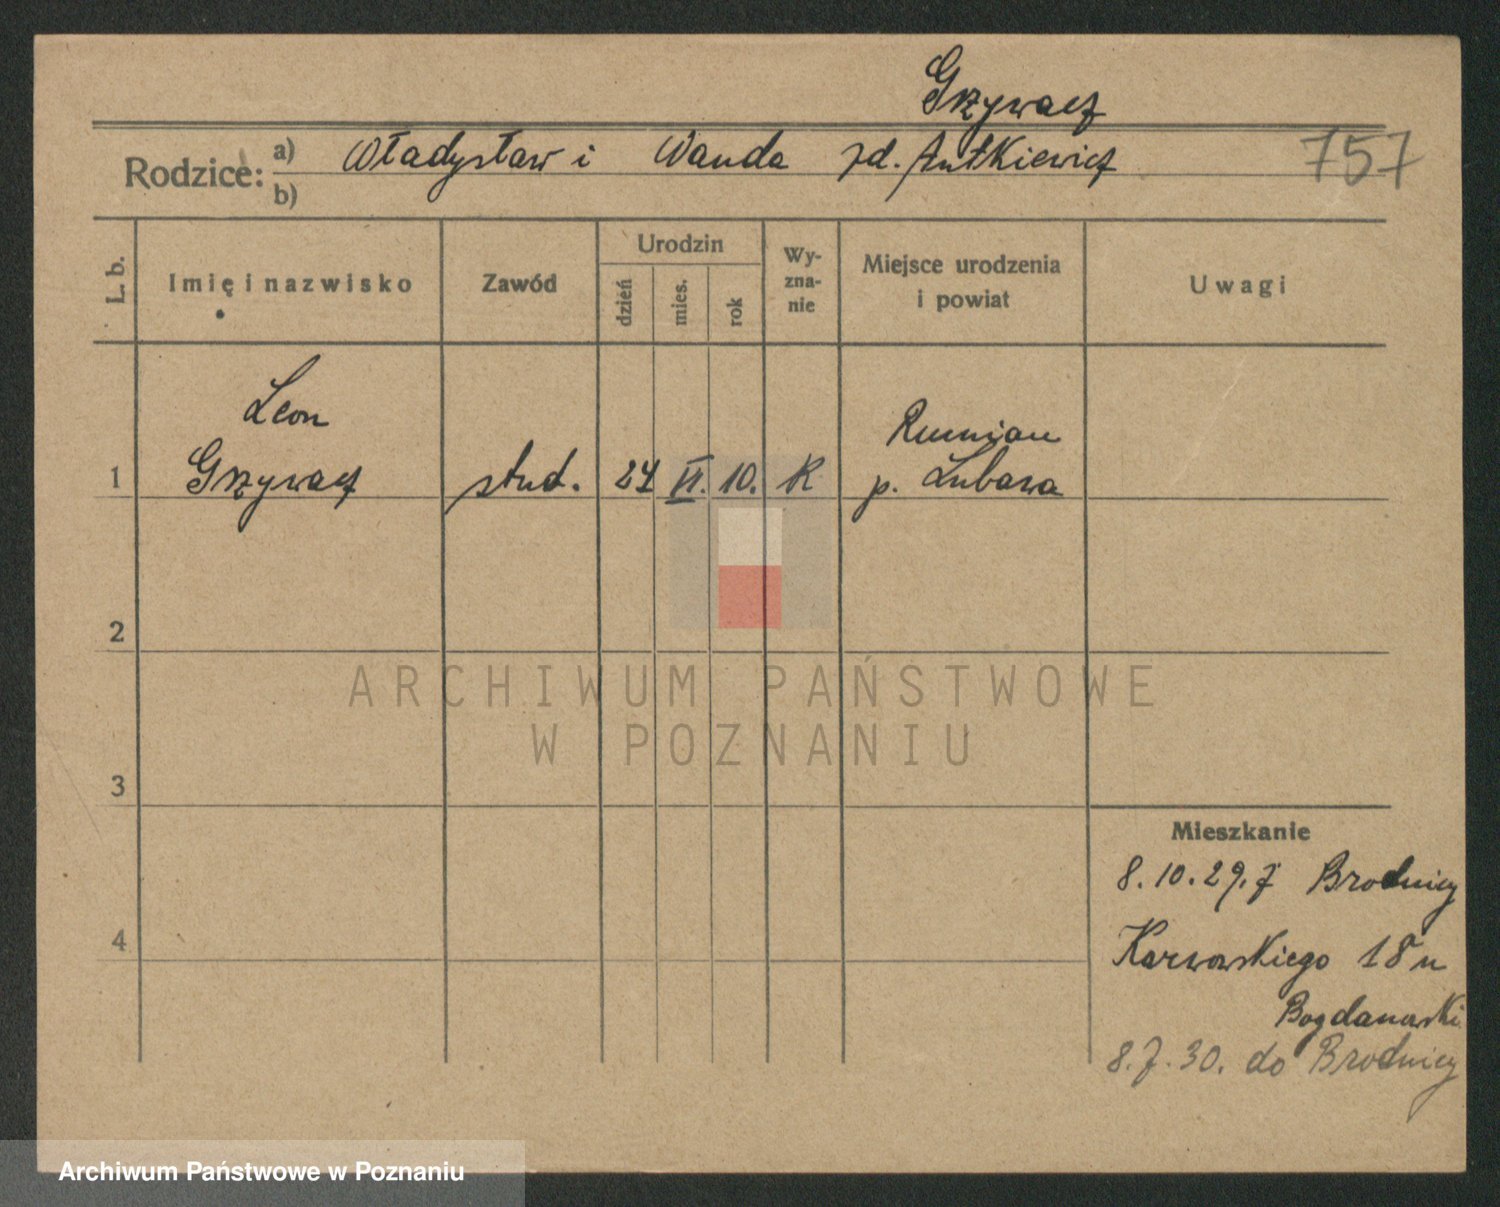 Grzywacz
Rodzice: a) Władysław i Wanda zd. Antkiewicz 757
b)
L. b.
Imię i nazwisko
Zawód
Urodzin
dzień
mies.
rok
Wy-
zna-
nie
Miejsce urodzenia
i powiat
Uwagi
Leon
Grzywacz
1
stud.
24 VI. 10.
R
Rumian
p. Lubawa
2
ARCHIWUM PAŃSTWOWE
W POZNANIU
3
Mieszkanie
8.10.29. z Brodnicy
4
Karwowskiego 18 u
Bogdanowski
8.7.30. do Brodnicy
Archiwum Państwowe w Poznaniu